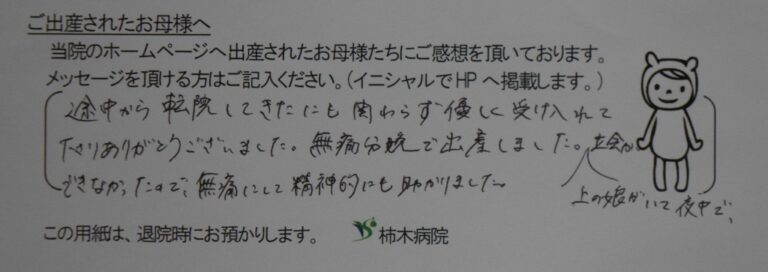 ご出産されたお母様へ
当院のホームページへ出産されたお母様たちにご感想を頂いております。
メッセージを頂ける方はご記入ください。(イニシャルでHPへ掲載します。)
途中から転院してきたにも関わらず優しく受け入れて
下さりありがとうございました。無痛分娩で出産しました。立会が
できなかったので、無痛にして精神的にも助かりました。
上の娘がいて夜中で、
この用紙は、退院時にお預かりします。 柿木病院